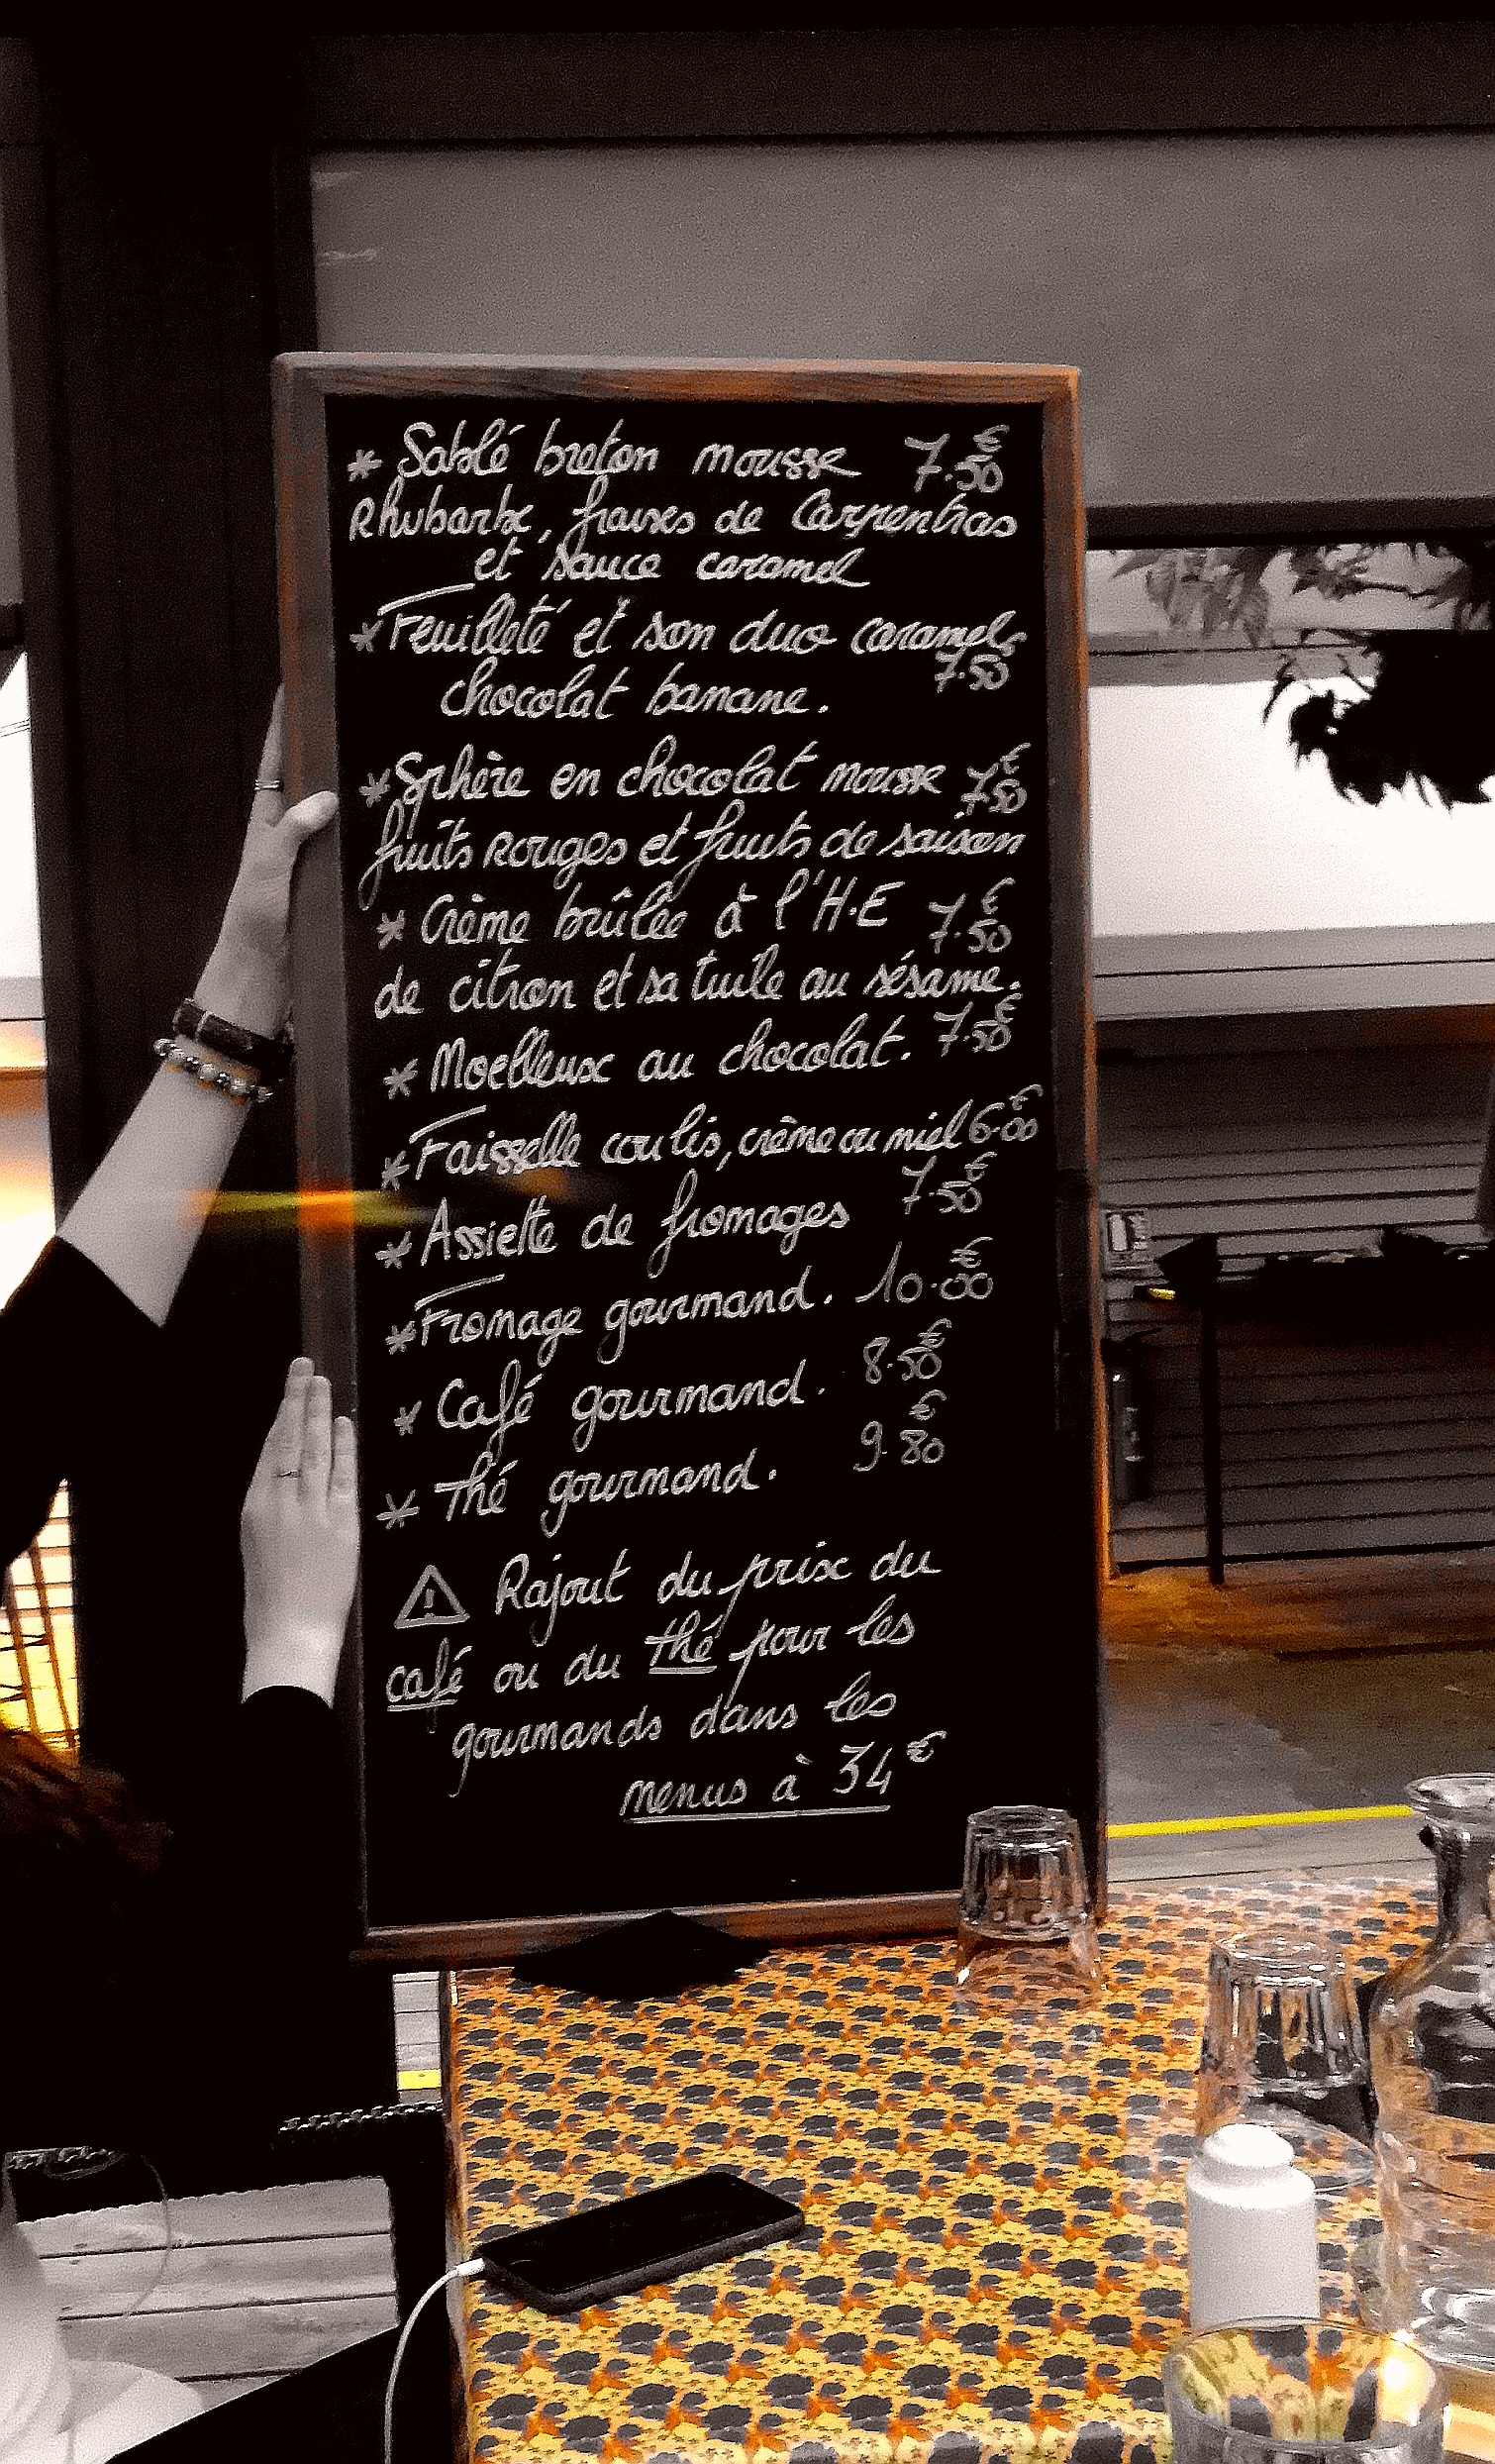 * Sablé breton mousse 7.50€
Rhubarbe, fraises de Carpentras
et sauce caramel
* Feuilleté et son duo caramel,
7.50
chocolat banane.
* Sphère en chocolat mousse 7.50€
fruits Rouges et fruits de saison
* Crème brûlée à l'H.E 7.50€
de citron et sa tuile au sésame.
* Moelleux au chocolat. 7.50€
* Faisselle coulis, crème ou miel 6.00€
* Assiette de fromages 7.50€
* Fromage gourmand. 10.00€
* Café gourmand. 8.50€
* Thé gourmand. 9.80€
⚠ Rajout du prix du
café ou du thé pour les
gourmands dans les
menus à 34€